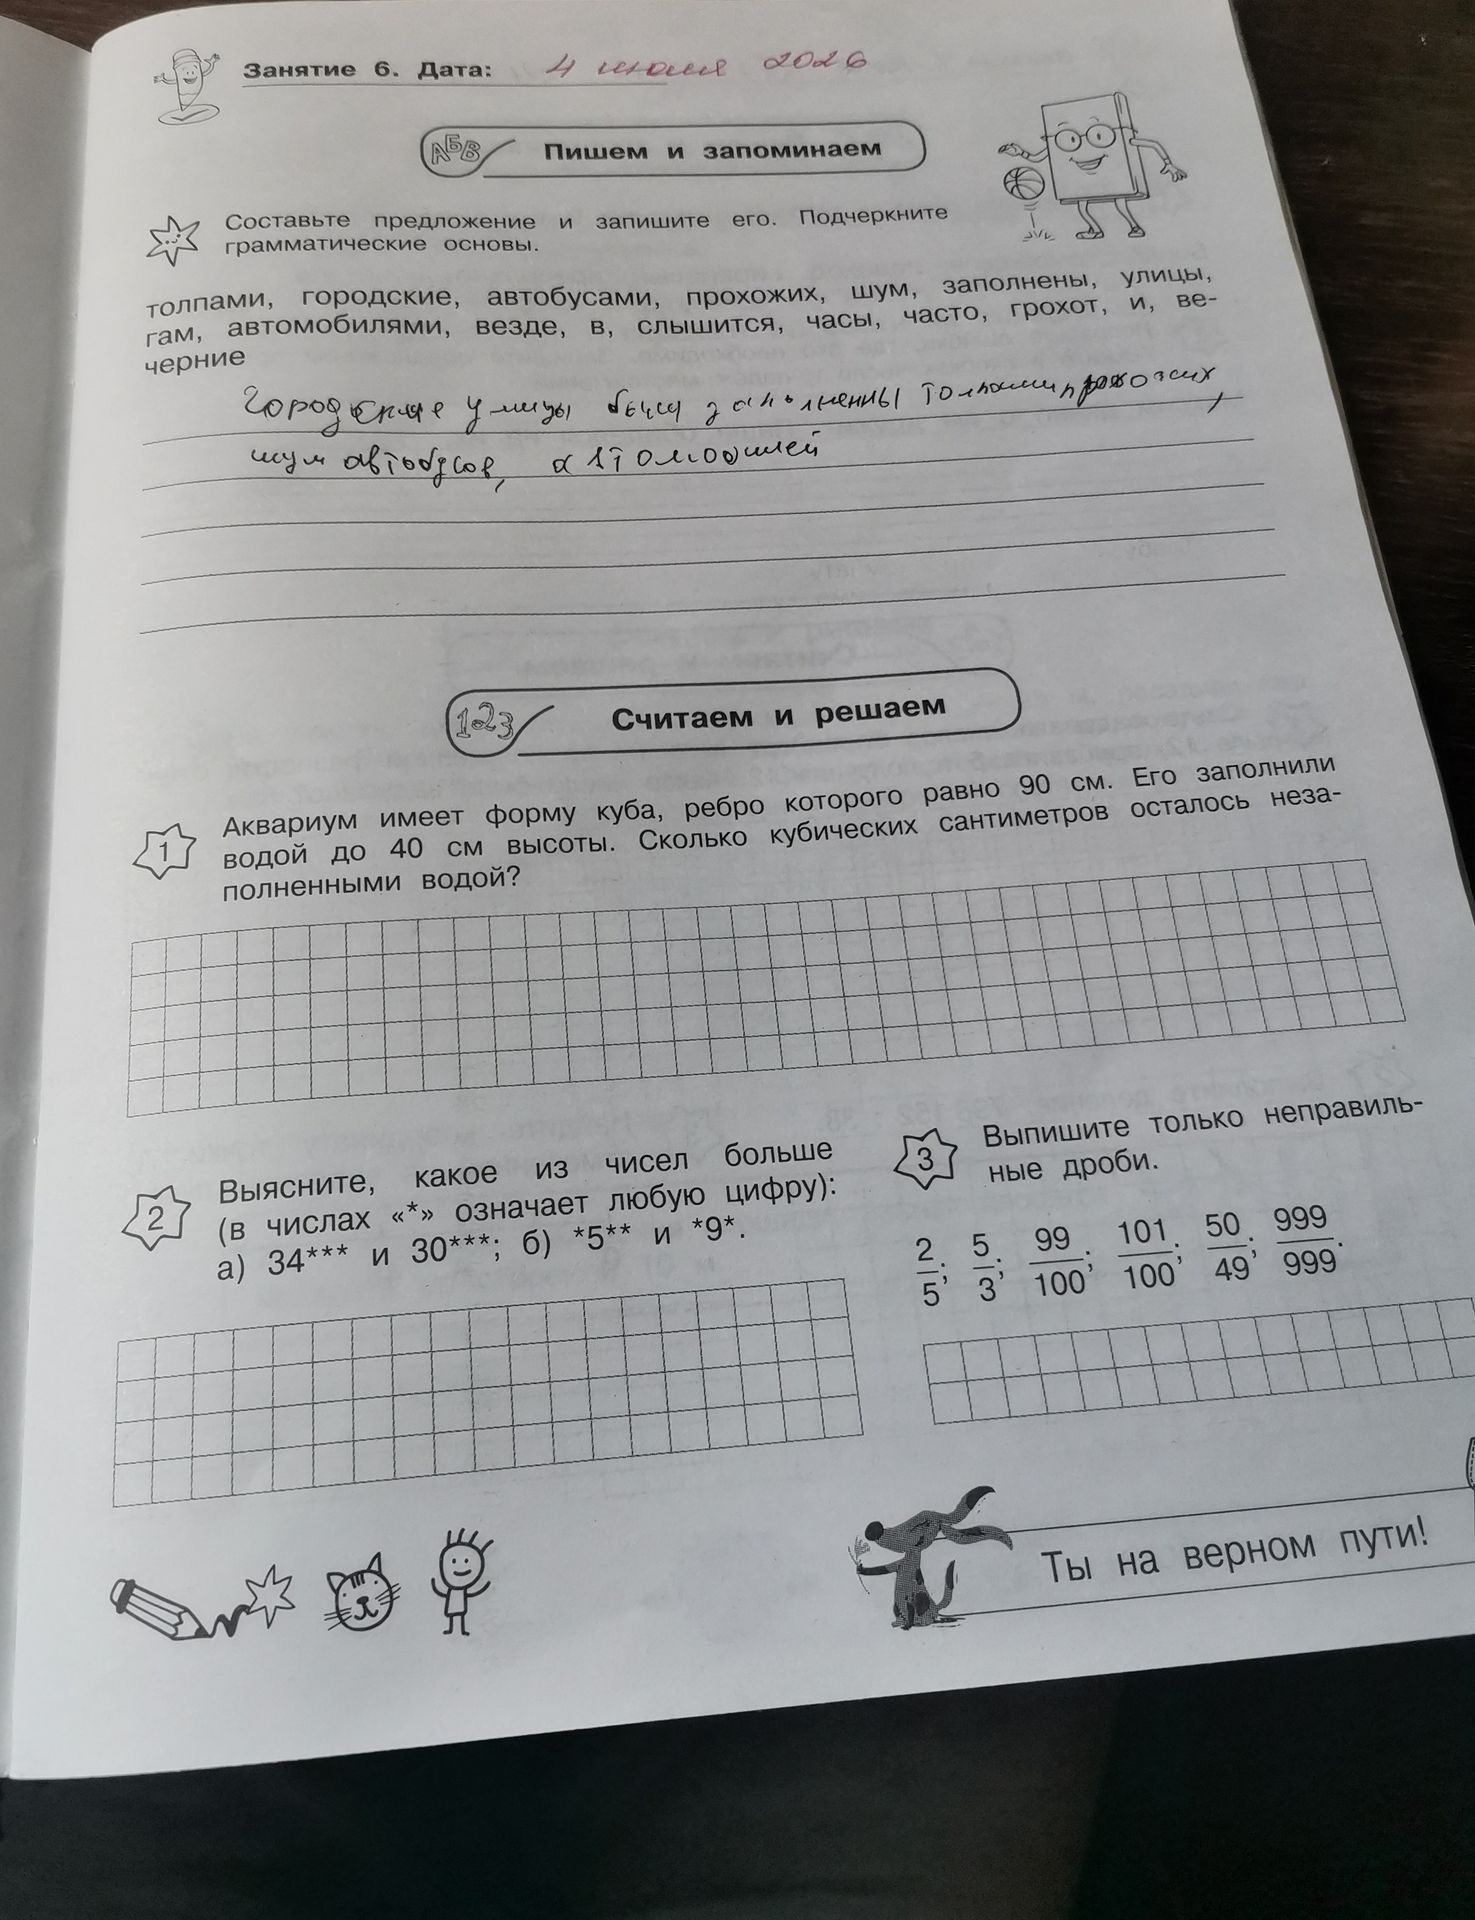 Занятие 6. Дата: 4 июля 2026
АБВ Пишем и запоминаем
Составьте предложение и запишите его. Подчеркните
грамматические основы.
толпами, городские, автобусами, прохожих, шум, заполнены, улицы,
гам, автомобилями, везде, в, слышится, часы, часто, грохот, и, ве-
черние
Городские улицы были заполненны толпами прохожих,
шум автобусов, автомобилей
123 Считаем и решаем
1 Аквариум имеет форму куба, ребро которого равно 90 см. Его заполнили
водой до 40 см высоты. Сколько кубических сантиметров осталось неза-
полненными водой?
2 Выясните, какое из чисел больше
(в числах «*» означает любую цифру):
а) 34*** и 30***; б) *5** и *9*.
3 Выпишите только неправиль-
ные дроби.
2/5; 5/3; 99/100; 101/100; 50/49; 999/999.
Ты на верном пути!